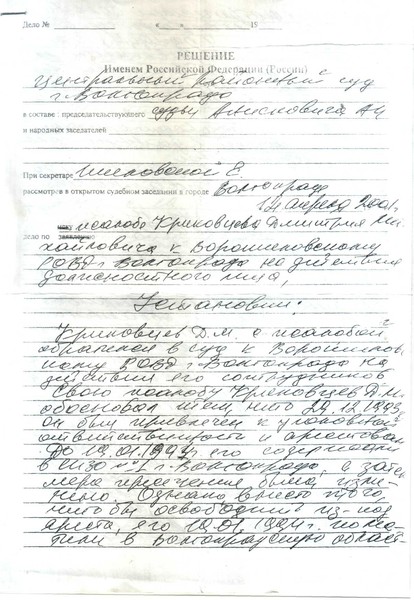 Дело № « » 19
РЕШЕНИЕ
Именем Российской Федерации (России)
Центральный районный суд
г. Волгограда
в составе: председательствующего судьи Анисковича А Н
и народных заседателей
При секретаре
рассмотрев в открытом судебном заседании в городе Волгограде
апреля 2001
дело по жалобе Криковцева Дмитрия Ми-
хайловича к Ворошиловскому
РОВД г. Волгограда на действия
должностного лица,
Установил:
Криковцев Д.М. с жалобой
обратился в суд к Ворошилов-
скому РОВД г. Волгограда на
действия его сотрудников
Свою жалобу Криковцев Д.М.
обосновал тем, что 29.12.1993
он был привлечен к уголовной
ответственности и арестован
До 19.01.1994г. его содержали
в СИЗО №1 г. Волгограда, а затем
мера пресечения была изме-
нена. Однако вместо того,
чтобы освободить из-под
ареста, его 19.01.1994г. поме-
тили в Волгоградскую област-